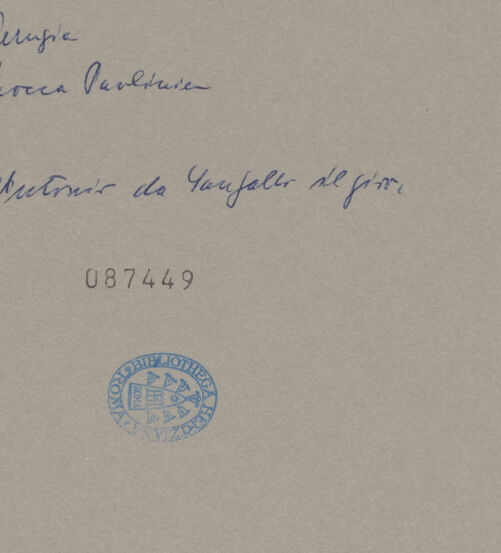 Perugia
Rocca Paolina
Antonio da Sangallo il giov.
087449
BIBLIOTHECA HERTZIANA ROMA